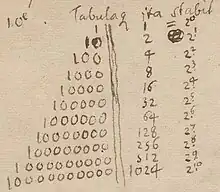 10^e Tabula ita stabit
1 | 1 = 2^0
10 | 2 2^1
100 | 4 2^2
1000 | 8 2^3
10000 | 16 2^4
100000 | 32 2^5
1000000 | 64 2^6
10000000 | 128 2^7
100000000 | 256 2^8
1000000000 | 512 2^9
10000000000 | 1024 2^10